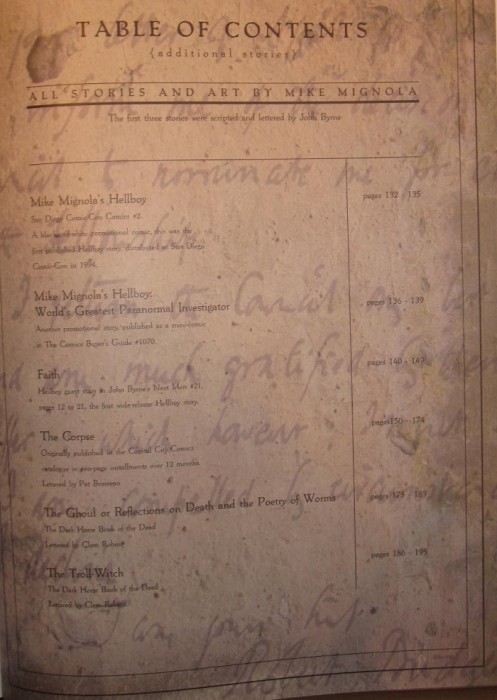 TABLE OF CONTENTS
{additional stories}
ALL STORIES AND ART BY MIKE MIGNOLA
The first three stories were scripted and lettered by John Byrne
Mike Mignola's Hellboy
pages 132 - 135
San Diego Comic-Con Comics #2.
A black-and-white promotional comic, this was the
first published Hellboy story, distributed at San Diego
Comic-Con in 1994.
Mike Mignola's Hellboy:
World's Greatest Paranormal Investigator
pages 136 - 139
Another promotional story, published as a mini-comic
in The Comics Buyer's Guide #1070.
Faith
pages 140 - 149
Hellboy guest story in John Byrne's Next Men #21,
pages 12 to 21, the first wide-release Hellboy story.
The Corpse
pages 150 - 174
Originally published in the Capital City Comics
catalogue in two-page installments over 12 months.
Lettered by Pat Brosseau
The Ghoul or Reflections on Death and the Poetry of Worms
pages 175 - 185
The Dark Horse Book of the Dead
Lettered by Clem Robins
The Troll-Witch
pages 186 - 195
The Dark Horse Book of the Dead
Lettered by Clem Robins
to nominate me for
much gratified
which honour
compelled
your